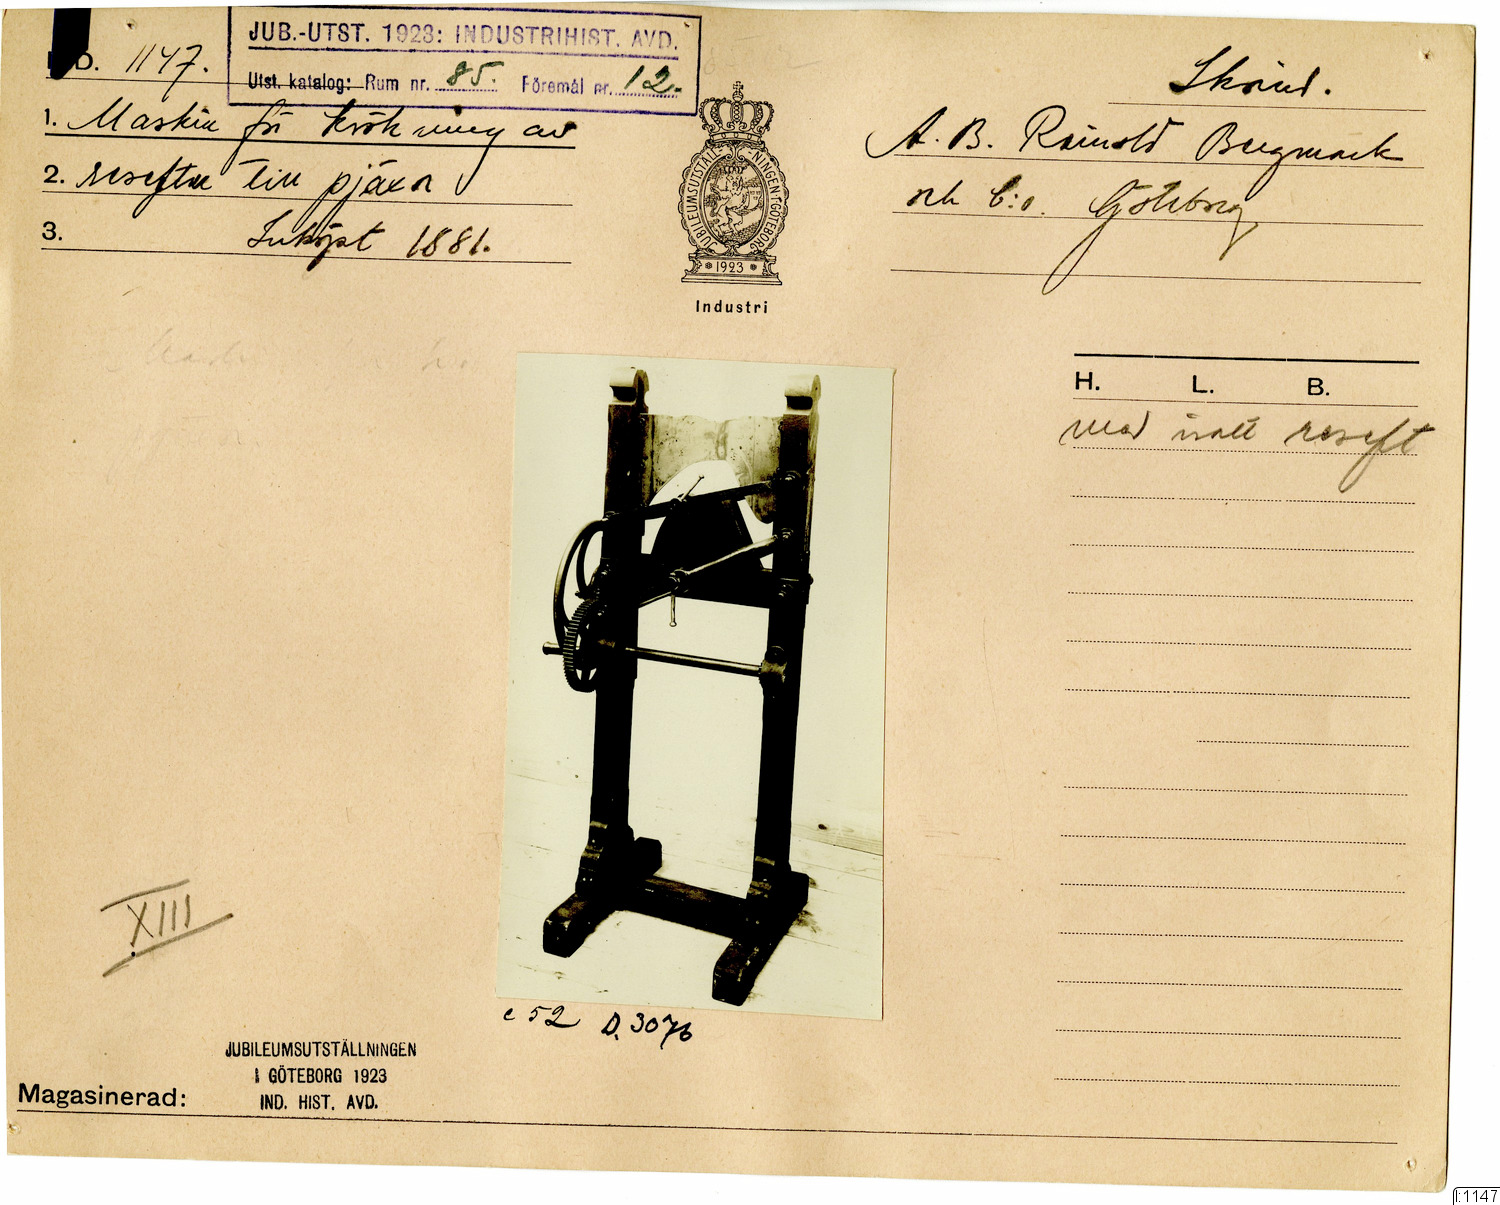 JUB.-UTST. 1923: INDUSTRIHIST. AVD.
Utst. katalog: Rum nr. 85. Föremål nr. 12.
D. 1147.
1. Maskin för krökning av
2. resefter till pjäxor
3. Inköpt 1881.
JUBILEUMSUTSTÄLLNINGEN I GÖTEBORG
1923
Industri
Skoind.
A. B. Reinold Bergmark
och C:o. Göteborg
H. L. B.
med reseft
XIII
c 52 D. 3076
JUBILEUMSUTSTÄLLNINGEN
I GÖTEBORG 1923
IND. HIST. AVD.
Magasinerad:
I:1147